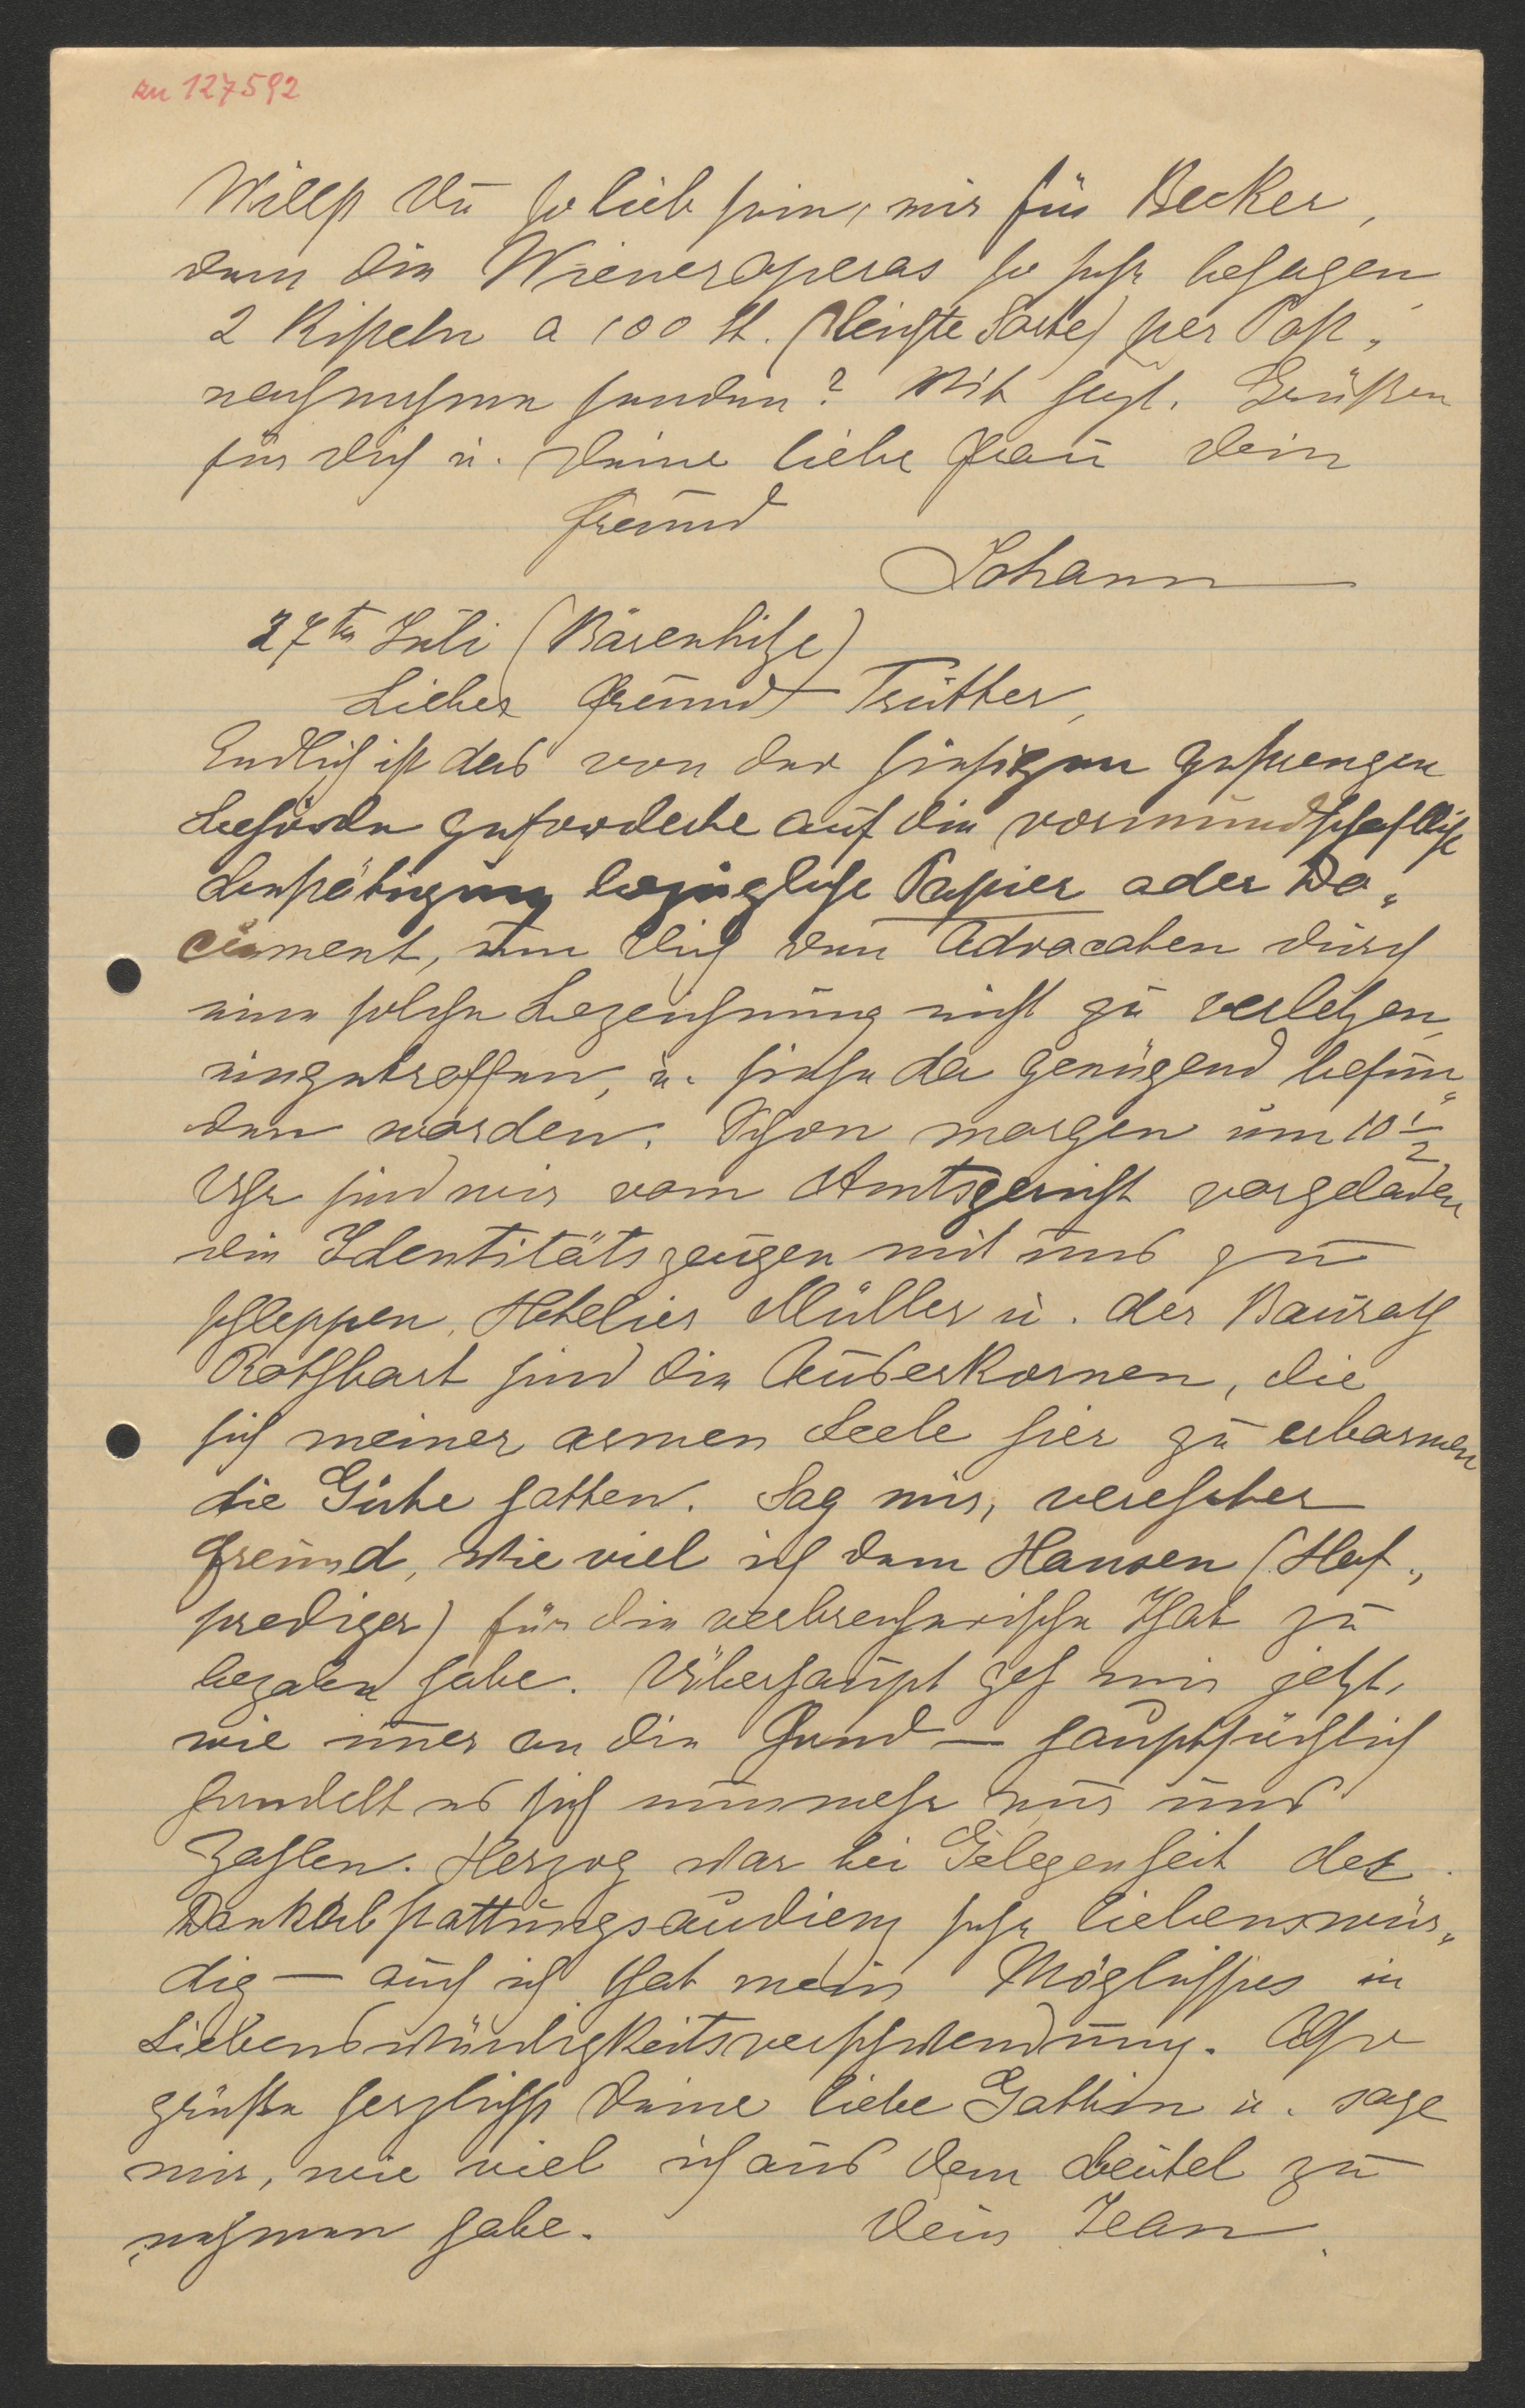 zu 127592
Willst Du so lieb sein, mir für Becker,
dem die Wieneroperas so sehr behagen
2 Kisteln a 100 St. (leichte Sorte) per Post„
nachnahme senden? Mit herzl. Grüßen
für Dich u. Deine liebe Frau Dein
Freund
Johann
27ten Juli (Bärenhitze)
Lieber Freund Trutter,
Endlich ist das von der hiesigen gestrengen
Behörde geforderte auf die vormundschaftliche
Bestätigung bezügliche Papier oder Do„
cument, um Dich den Advocaten durch
eine solche Bezeichnung nicht zu verletzen,
eingetroffen, u. siehe da genügend befun„
den worden. Schon morgen um 10 ½
Uhr sind wir vom Amtsgericht vorgeladen
die Identitätszeugen mit uns zu
schleppen. Hotelier Müller u. der Baurath
Rothbart sind die Auserkornen, die
sich meiner armen Seele hier zu erbarmen
die Güte hatten. Sag mir, verehrter
Freund, wie viel ich dem Hansen (Hof„
prediger) für die verbrecherische That zu
bezalen habe. Überhaupt geh mir jetzt,
wie imer an die Hand — hauptsächlich
handelt es sich nunmehr nur ums
Zahlen. Herzog war bei Gelegenheit der
Dankabstattungsaudienz sehr liebenswür„
dig — auch ich that mein Möglichstes in
Liebenswürdigkeitsverschwendung. Also
grüße herzlichst Deine liebe Gattin u. sage
mir, wie viel ich aus dem Beutel zu
nehmen habe. Dein Jean